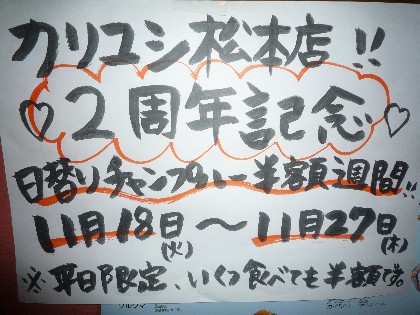 カリユシ松本店!!
♡2周年記念♡
日替りチャンプルー半額週間!!
11月18日(火)～11月27日(木)
※平日限定、いくつ食べても半額です。